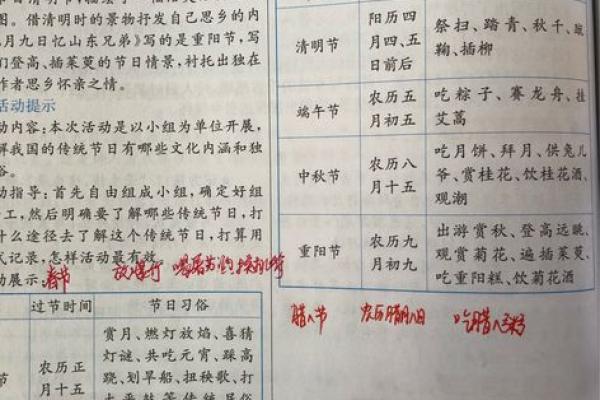 图。借清明时的景物抒发自己思乡的内
月九日忆山东兄弟》写的是重阳节,写
们登高、插茱萸的节日情景,衬托出独在
作者思乡怀亲之情。
活动提示
动内容:本次活动是以小组为单位开展,
解我国的传统节日有哪些文化内涵和独
俗。
动指导:首先自由组成小组,确定好组
工,然后明确要了解哪些传统节日,打
什么途径去了解这个传统节日,打算用
式记录,怎样活动最有效。
动展示:
春节
过节时间 节日习俗
节 农历正月十五 赏月、燃灯放焰、喜猜
灯谜、共吃元宵、踩高
跷、划旱船、扭秧歌、打
清明节 阳历四月四、五日前后 祭扫、踏青、秋千、蹴
鞠、插柳
端午节 农历五月初五 吃粽子、赛龙舟、挂
艾蒿
中秋节 农历八月十五 吃月饼、拜月、供兔儿
爷、赏桂花、饮桂花酒、
观潮
重阳节 农历九月初九 出游赏秋、登高远眺、
观赏菊花、遍插茱萸、
吃重阳糕、饮菊花酒
腊八节 农历腊月八日 吃腊八粥